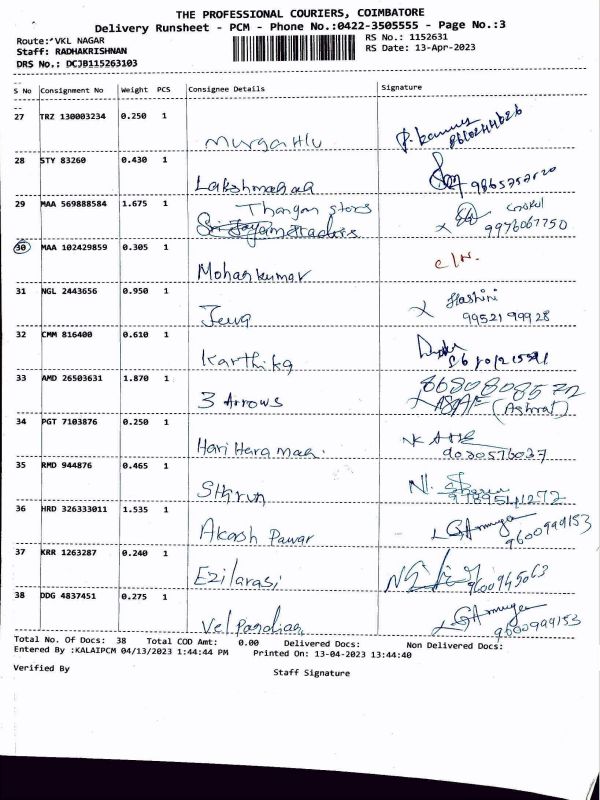 THE PROFESSIONAL COURIERS, COIMBATORE
Delivery Runsheet - PCM - Phone No.:0422-3505555 - Page No.:3
Route: VKL NAGAR RS No.: 1152631
Staff: RADHAKRISHNAN RS Date: 13-Apr-2023
DRS No.: DCJB115263103
S No Consignment No Weight PCS Consignee Details Signature
27 TRZ 130003234 0.250 1
28 STY 83260 0.430 1
Lakshmanaa
29 MAA 569888584 1.675 1 Thangam stores
9976067750
30 MAA 102429859 0.305 1
Mohankumar
31 NGL 2443656 0.950 1 Hashini
Jeeva 9952199928
32 CMM 816400 0.610 1
Karthika
33 AMD 26503631 1.870 1 8680808572
3 Arrows (Ashraf)
34 PGT 7103876 0.250 1
Hari Hara 9030576037
35 RMD 944876 0.465 1
36 HRD 326333011 1.535 1
Akash Pawar 9600999153
37 KRR 1263287 0.240 1
Ezilarasi
38 DDG 4837451 0.275 1
Vel Pandian 9600999153
Total No. Of Docs: 38 Total COD Amt: 0.00 Delivered Docs: Non Delivered Docs:
Entered By :KALAIPCM 04/13/2023 1:44:44 PM Printed On: 13-04-2023 13:44:40
Verified By Staff Signature